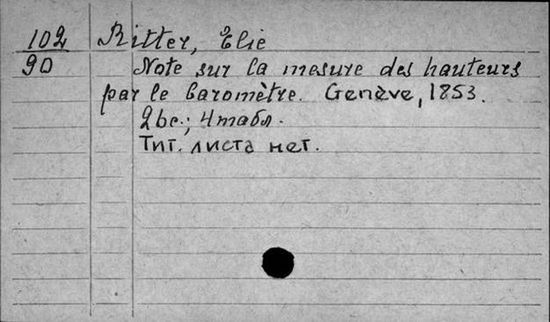 102 Ritter, Elie
90 Note sur la mesure des hauteurs
par le baromètre. Genève, 1853.
26с.; 4 табл.
Тит. листа нет.